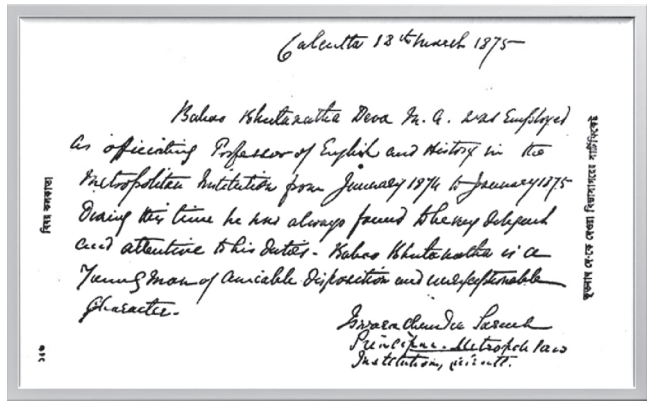 Calcutta 12th March 1875
Baboo Khutanatha Deva M.A. was Employed
as officiating Professor of English and History in the
Metropolitan Institution from January 1874 to January 1875
During this time he was always found to be very diligent
and attentive to his duties - Baboo Khutanatha is a
Young man of amicable disposition and unexceptionable
Character.
Iswara Chundra Sarma
Principal Metropolitan
Institution,
বিষয় কলকাতা
ভূতনাথ দে-কে দেওয়া বিদ্যাসাগরের সার্টিফিকেট
১১৬